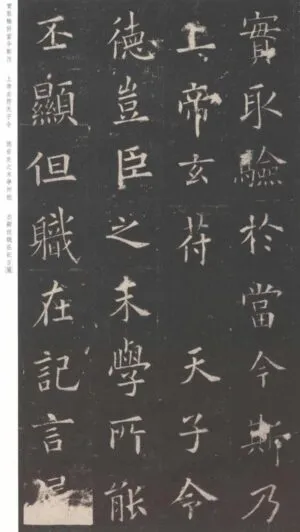 實取驗於當今斯乃
上帝玄苻 天子令
德豈臣之末學所能
丕顯但職在記言
實取驗於當今斯乃 上帝玄符天子令 德豈臣之末學所能 丕顯但職在記言屬